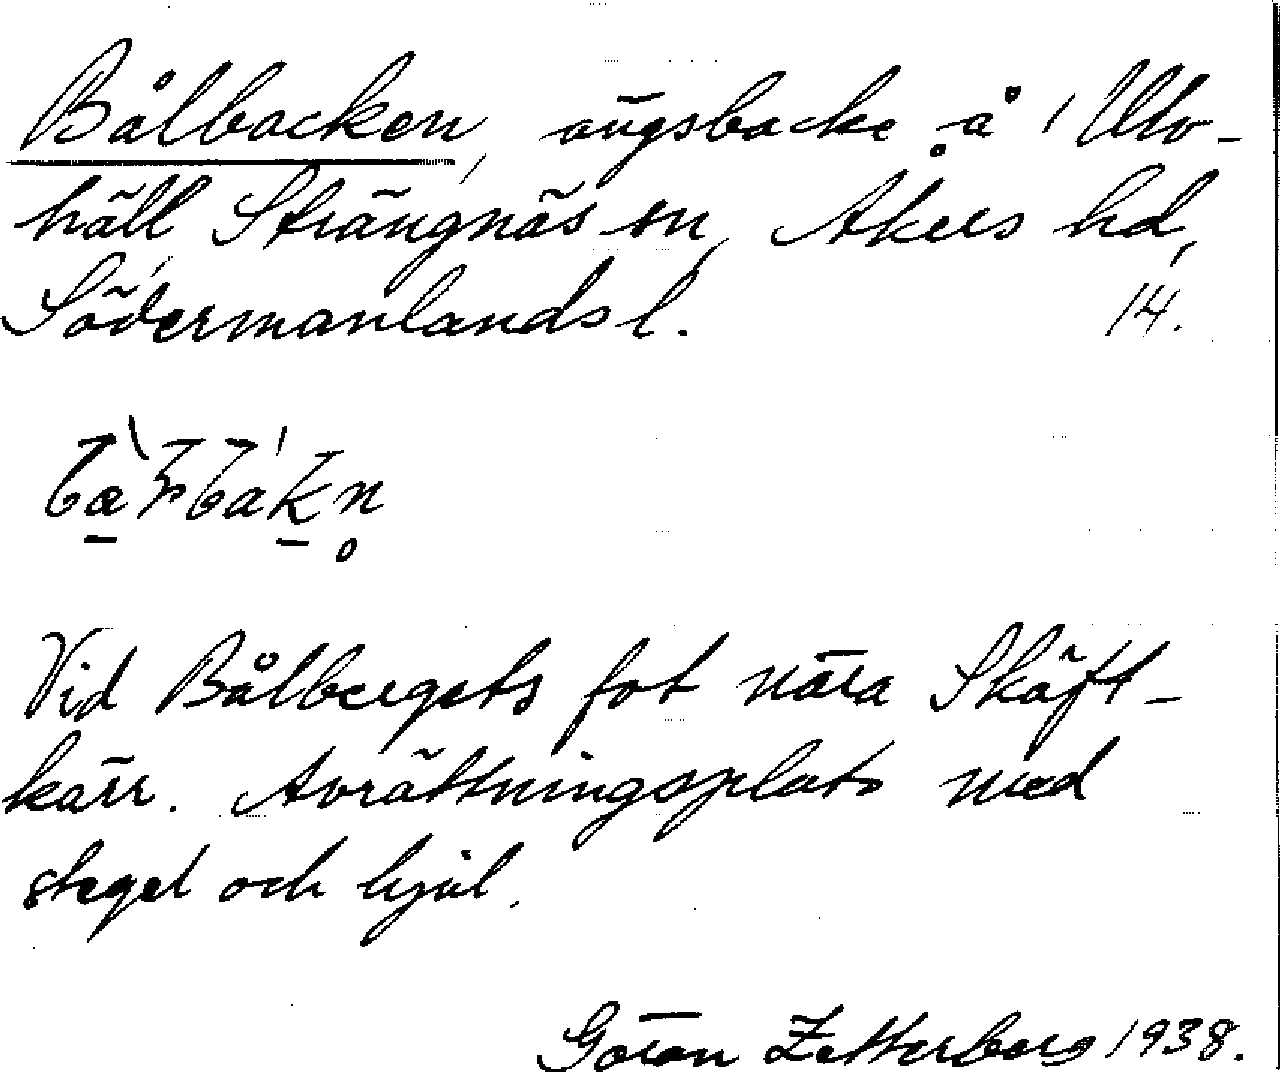 Bålbacken, ängsbacke å Ulv-
häll Strängnäs sn, Åkers hd,
Södermanlands l. 14.
Vid Bålbergets fot nära Skäft-
kärr. Avrättningsplats med
stegel och hjul.
Göran Zetterberg 1938.